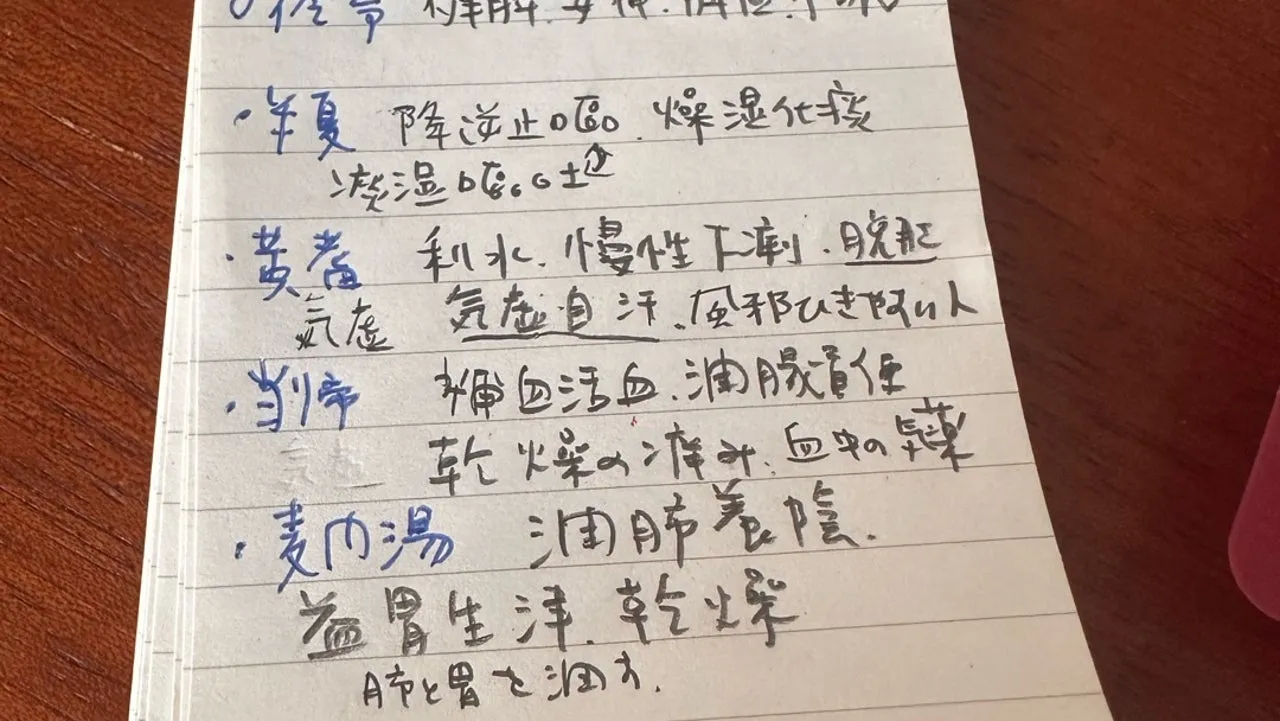 ・半夏 降逆止嘔。燥湿化痰
痰湿嘔吐
・黄耆 利水、慢性下痢、脱肛
気虚 気虚自汗、風邪ひきやすい人
・当帰 補血活血、潤腸通便
乾燥の痒み、血中の気薬
・麦門湯 潤肺養陰。
益胃生津、乾燥
肺と胃を潤す。